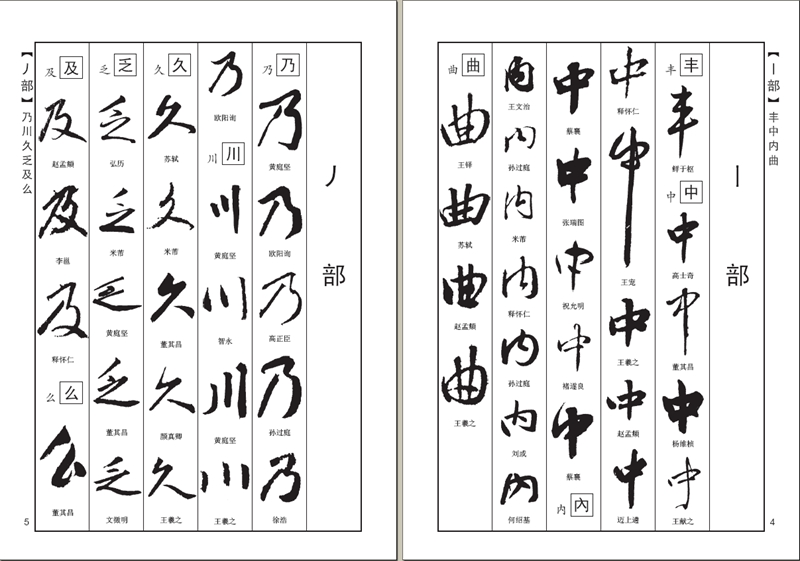 【丨部】丰中内曲
丨部
丰 丰
丰
鲜于枢
中 中
中
高士奇
中
董其昌
中
杨维桢
中
王献之
中
释怀仁
中
王宠
中
王羲之
中
赵孟頫
中
中
蔡襄
中
张瑞图
中
祝允明
中
褚遂良
中
蔡襄
内 內
内
王文治
内
孙过庭
内
米芾
内
释怀仁
内
孙过庭
内
内
何绍基
曲 曲
曲
王铎
曲
苏轼
曲
赵孟頫
曲
王羲之
4
【丿部】乃川久乏及么
丿部
乃 乃
乃
黄庭坚
乃
欧阳询
乃
高正臣
乃
孙过庭
乃
徐浩
乃
欧阳询
川 川
川
黄庭坚
川
智永
川
黄庭坚
川
王羲之
久 久
久
苏轼
久
米芾
久
董其昌
久
颜真卿
久
王羲之
乏 乏
乏
弘历
乏
米芾
乏
黄庭坚
乏
董其昌
乏
文徵明
及 及
及
赵孟頫
及
李邕
及
释怀仁
么 么
么
董其昌
5